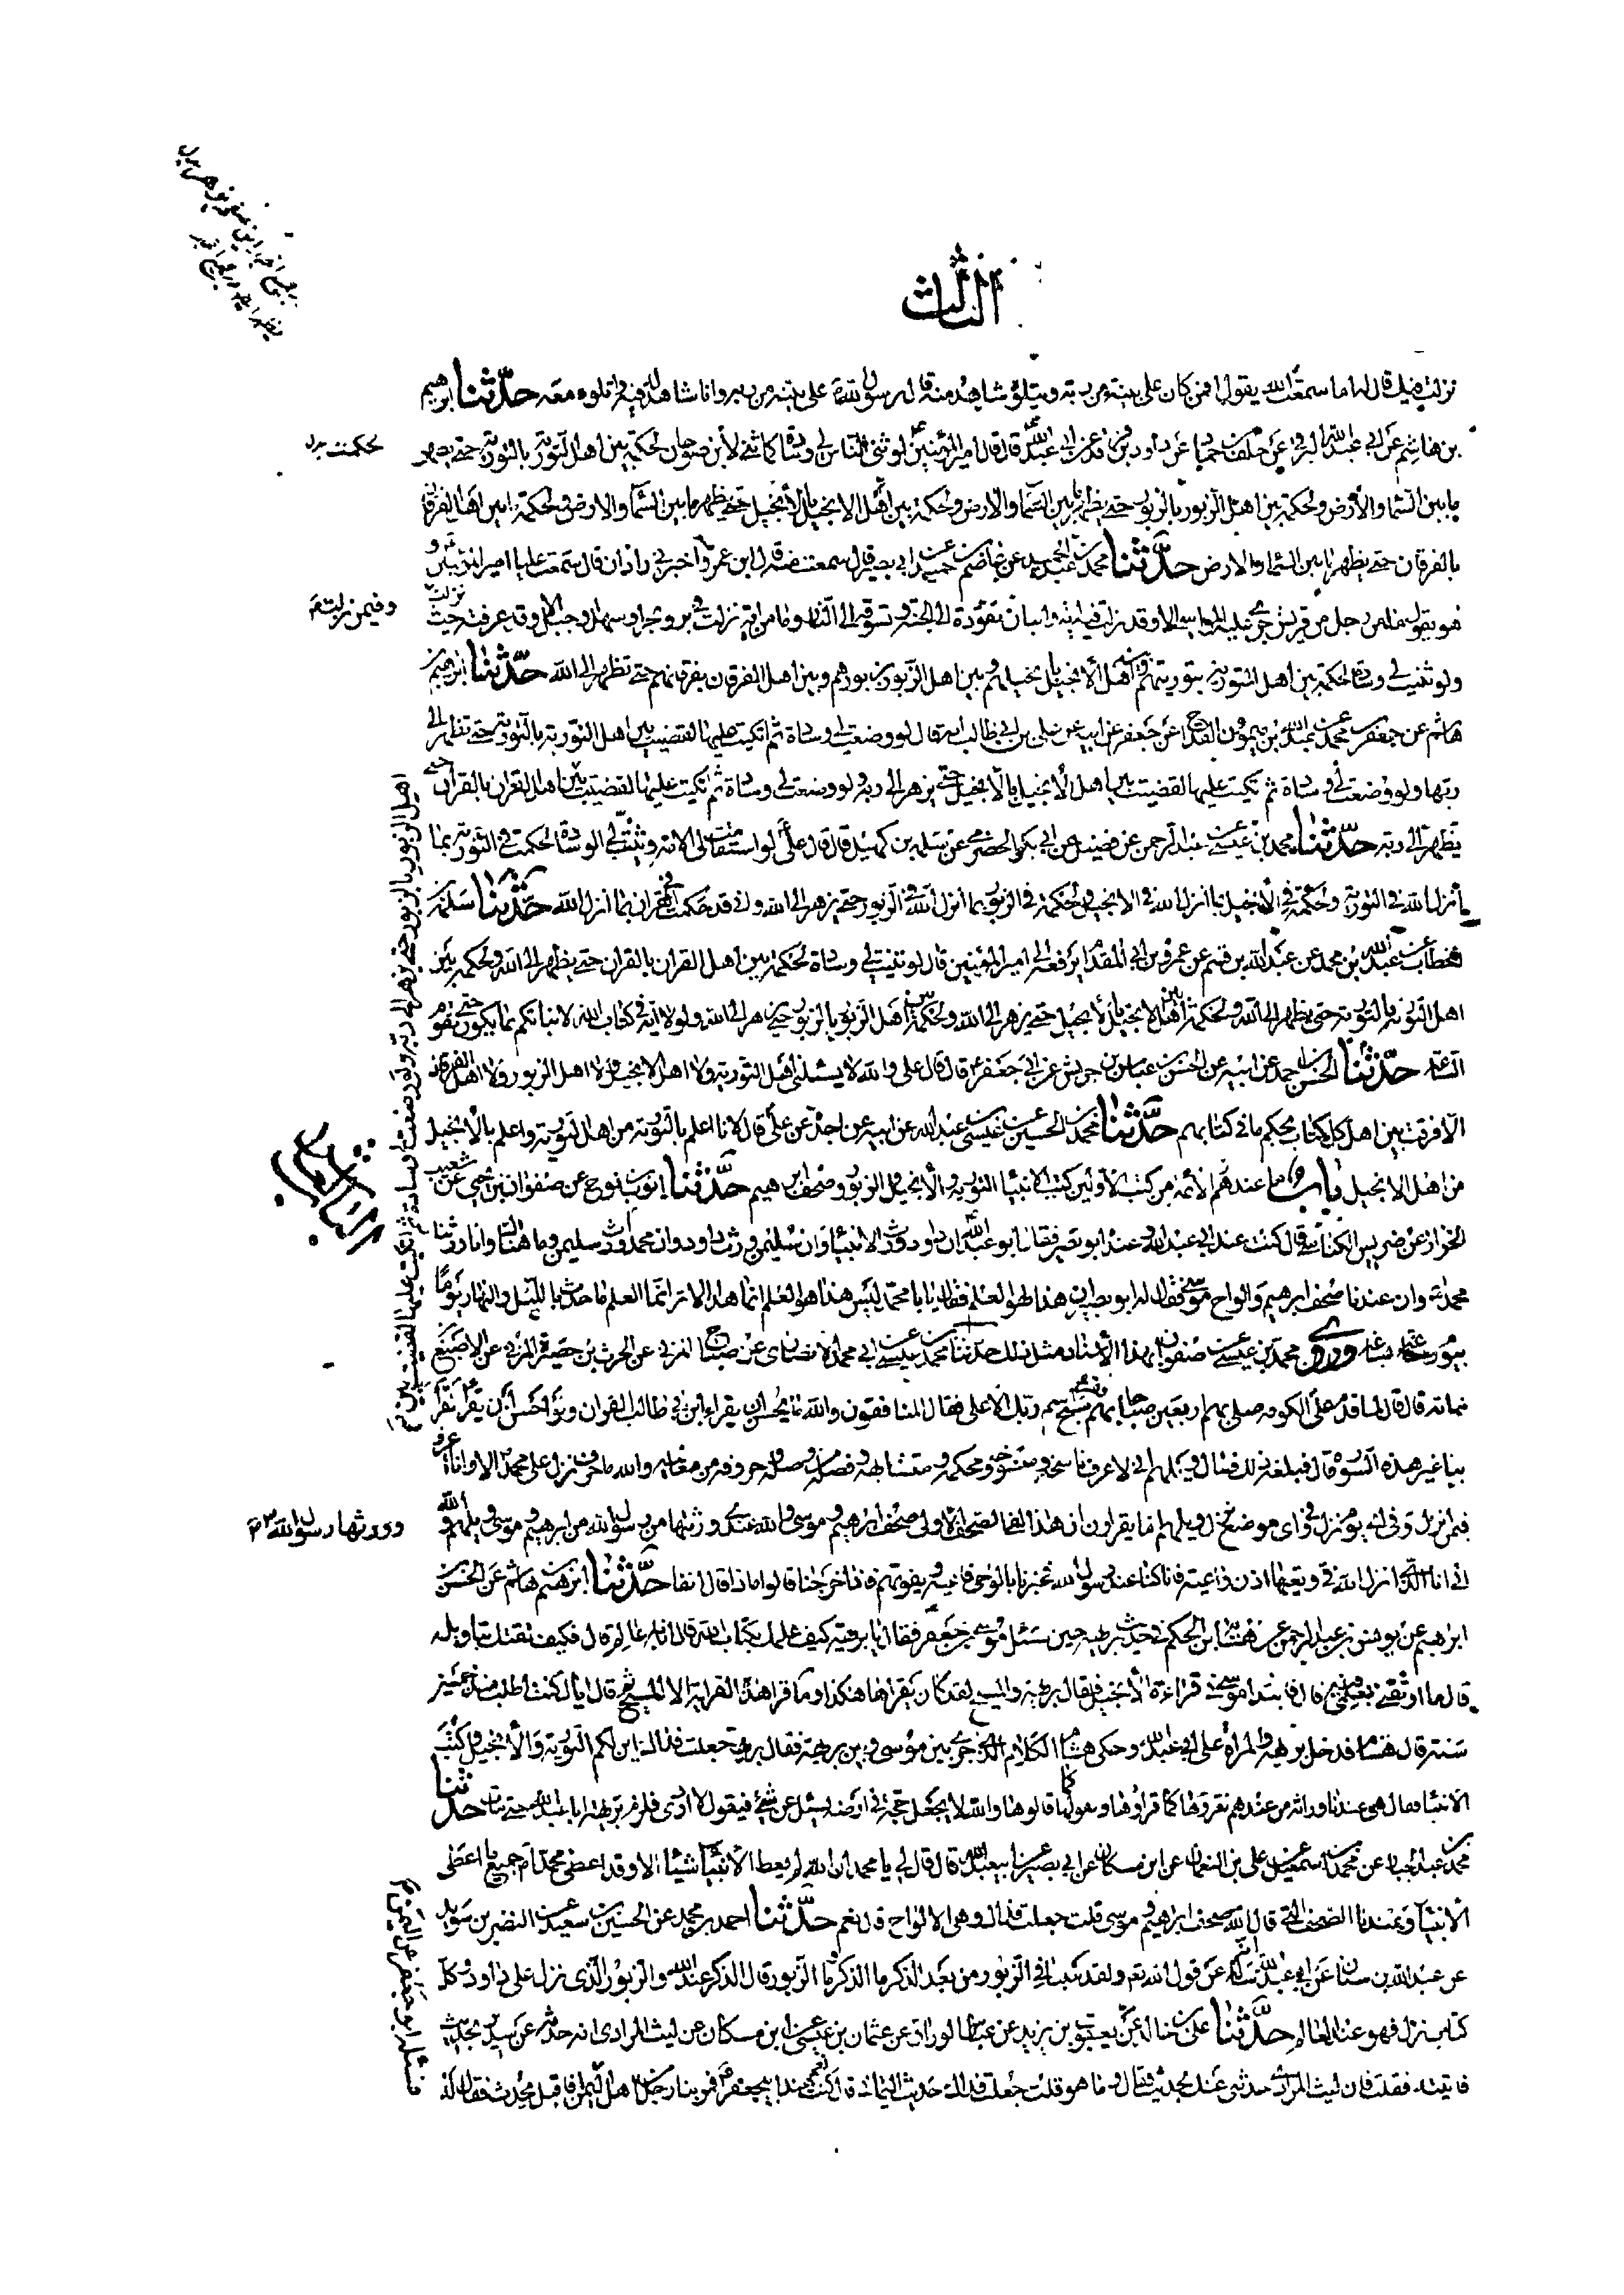 الثالث
نزلت فيك قال له اما سمعت الله يقول افمن كان على بينة من ربه ويتلوه شاهد منه قال رسول الله ص على بينة من ربه وانا شاهد له فيه واتلوه معه حدثنا ابرهيم
بن هاشم عن ابي عبد الله البرقي عن خلف بن حماد عن داود بن فرقد عن ابي عبد الله قال قال امير المؤمنين لو ثنى الناس لي وسادة كما ثني لابن صوحان لحكمت بين اهل التورية بالتورية حتى يظهر
ما بين السماء والأرض ولحكمت بين اهل الزبور بالزبور حتى يظهر ما بين السماء والارض ولحكمت بين اهل الانجيل بالأنجيل حتى يظهر ما بين السماء والارض ولحكمت بين اهل الفرقان
بالفرقان حتى يظهر ما بين السماء والارض حدثنا محمد بن عبد الحميد عن عاصم بن حميد عن ابي بصير قال سمعت قال ابن عمرو اخبرني زاذان قال سمعت عليا امير المؤمنين و
هو يقول ما من رجل من قريش جرى عليه المواسي الا وقد نزلت فيه اية وايتان تقوده الى الجنة وتسوقه الى النار وما من اية نزلت في بر وبحر او سهل او جبل الا وقد عرفت حيث نزلت
ولو ثنيت لي وسادة لحكمت بين اهل التورية بتوريتهم وبين اهل الأنجيل بانجيلهم وبين اهل الزبور بزبورهم وبين اهل الفرقان بفرقانهم حتى تظهر الى الله حدثنا ابرهيم بن
هاشم عن جعفر بن محمد عن عبد الله بن ميمون القداح عن جعفر عن ابيه عن علي بن ابي طالب انه قال لو وضعت لي وسادة ثم اتكيت عليها لقضيت بين اهل التورية بالتورية حتى تظهر الى
ربها ولو وضعت لي وسادة ثم اتكيت عليها لقضيت بين اهل الأنجيل بالأنجيل حتى يزهر الى ربه ولو وضعت لي وسادة ثم اتكيت عليها لقضيت بين اهل القران بالقران حتى
يظهر الى ربه حدثنا محمد بن عيسى عن عبد الرحمن عن فضيل عن ابي بكر الحضرمي عن سلمة بن كهيل قال قال علي لو استقامت لي الامة وثنيت لي الوسادة لحكمت في التورية بما
انزل الله في التورية ولحكمت في الأنجيل بما انزل الله في الانجيل ولحكمت في الزبور بما انزل الله في الزبور حتى يزهر الى الله واني قد حكمت في القران بما انزل الله حدثنا سلمة بن
الخطاب عن عبد الله بن محمد عن عبد الله بن قاسم عن عمرو بن ابي المقدام يرفعه الى امير المؤمنين قال لو ثنيت لي وسادة لحكمت بين اهل القران بالقران حتى يظهر الى الله ولحكمت بين
اهل التورية بالتورية حتى يظهر الى الله ولحكمت بين اهل الانجيل بالأنجيل حتى يزهر الى الله ولحكمت بين اهل الزبور بالزبور حتى يزهر الى الله ولولا اية في كتاب الله لانباتكم بما يكون حتى تقوم
الساعة حدثنا الحسن بن احمد عن ابيه عن الحسن بن عباس بن حريش عن ابي جعفر قال قال علي والله لا يسئلني اهل التورية ولا اهل الانجيل ولا اهل الزبور ولا اهل الفرقان
الا فرقت بين اهل كل كتاب بحكم ما في كتابهم حدثنا محمد بن الحسين عن عيسى بن عبد الله عن ابيه عن جده عن علي قال لانا اعلم بالتورية من اهل التورية واعلم بالأنجيل
من اهل الانجيل باب ما عندهم الأئمة من كتب الأولين كتب الانبياء التورية والأنجيل والزبور وصحف ابرهيم حدثنا ايوب بن نوح عن صفوان بن يحيى عن شعيب
الخزاز عن ضريس الكناسي قال كنت عند ابي عبد الله وعنده ابو بصير فقال ابو عبد الله ان داود ورث الانبياء وان سليمن ورث داود وان محمد ورث سليمن وما هناك وانا ورثنا
محمدا وان عندنا صحف ابرهيم والواح موسى فقال له ابو بصير ان هذا لهو العلم فقال يا ابا محمد ليس هذا هو العلم انما هذا الاثر انما العلم ما حدث بالليل والنهار يوما
بيوم وساعة بساعة وروى محمد بن عيسى عن صفوان بهذا الأسناد مثل ذلك حدثنا محمد بن عيسى عن ابي محمد الأنصاري عن صباح المزني عن الحرث بن حصيرة المزني عن الاصبغ بن
نباته قال قال لما قدم علي الكوفة صلى بهم اربعين صباحا يقرء بهم سبح اسم ربك الاعلى فقال المنافقون والله ما يحسن ان يقراء ابن ابي طالب القران ولو احسن ان يقرا لقرا
بنا غير هذه السورة قال فبلغه ذلك فقال ويلهم اني لاعرف ناسخه ومنسوخه ومحكمه ومتشابهه وفصله من وصله وحروفه من معانيه والله ما حرف نزل على محمد الا وانا اعرف
فيمن انزل وفي اي يوم نزل وفي اي موضع نزل ويلهم اما يقراون ان هذا لفي الصحف الاولى صحف ابرهيم وموسى والله عندي ورثتها من رسول الله من ابرهيم وموسى ويلهم والله
اني انا الذي انزل الله في وتعيها اذن واعية فانا كنا عند رسول الله فخبرنا بالوحي فاعيه ويفوتهم فاذا خرجنا قالوا ماذا قال انفا حدثنا ابرهيم بن هاشم عن الحسن بن
ابرهيم عن يونس بن عبد الرحمن عن هشام بن الحكم في حديث بريهه حين سئل موسى بن جعفر فقال يا بريهة كيف علمك بكتابك قال انا به عالم قال فكيف ثقتك بتاويله
قال ما اوثقني بعلمي فيه قال فابتدا موسى في قراءة الأنجيل فقال بريهة والمسيح لقد كان يقراها هكذا وما قرا هذه القراءة الا المسيح ثم قال اياك كنت اطلب منذ خمسين
سنة قال هشام فدخل بريهة والمراة على ابي عبد الله وحكى هشام الكلام الذي جرى بين موسى وبين بريهة فقال بريهة جعلت فداك اين لكم التورية والأنجيل وكتب
الانبياء فقال هي عندنا وراثة من عندهم نقروها كما قراوها ونقولها كما قالوها والله لا يجعل حجة في ارضه يسئل عن شئ فيقول لا ادري فلزم بريهة ابا عبد الله حتى مات حدثنا
محمد بن عبد الجبار عن محمد بن اسمعيل عن علي بن النعمان عن ابن مسكان عن ابي بصير عن ابي عبد الله قال قال لي يا محمد ان الله لم يعط الأنبياء شيئا الا وقد اعطى محمدا جميع ما اعطى
الأنبياء وعندنا الصحف التي قال الله صحف ابراهيم وموسى قلت جعلت فداك وهي الالواح قال نعم حدثنا احمد بن محمد عن الحسين بن سعيد عن النضر بن سويد
عن عبد الله بن سنان عن ابي عبد الله انه ساله عن قول الله تع ولقد كتبنا في الزبور من بعد الذكر ما الذكر وما الزبور قال الذكر عند الله والزبور الذي نزل على داود وكل
كتاب نزل فهو عند العالم حدثنا علي بن خالد عن يعقوب بن يزيد عن عباس الوراق عن عثمان بن عيسى عن ابن مسكان عن ليث المرادي انه حدثه عن سدير بحديث
فاتيته فقلت فان ليث المرادي حدثني عنك بحديث فقال وما هو قلت جعلت فداك حديث اليماني قال نعم كنت عند ابي جعفر فمر بنا رجل من اهل اليمن فاقبل يحدث فقال له
لحكمت
وفيمن نزلت
اهل الزبور بالزبور حتى يزهر الى ربه ولو وضعت لي وسادة ثم اتكيت عليها لقضيت بين
الباب العاشر
وورثتها رسول الله ص
فسئله ابو جعفر عن اليمن